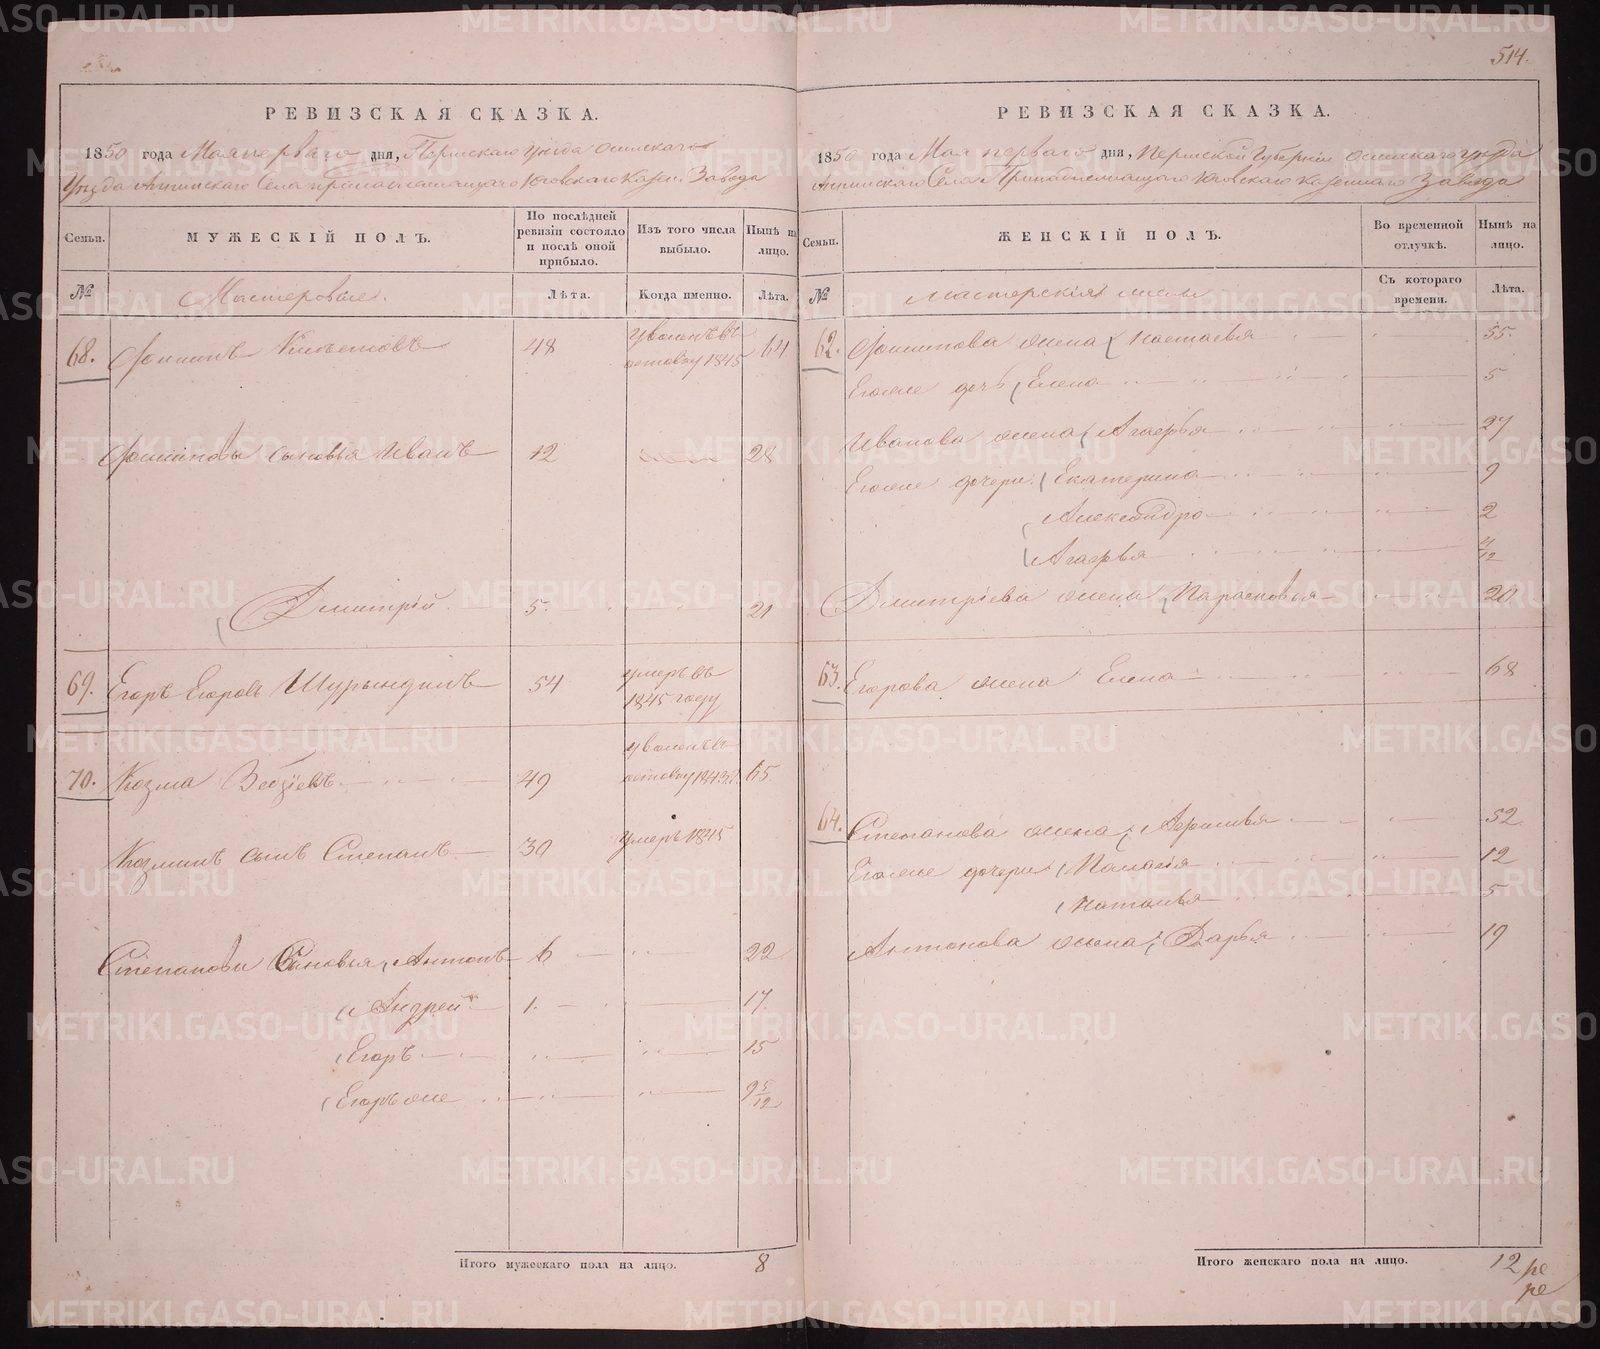 514.
РЕВИЗСКАЯ СКАЗКА.
1850 года Мая первого дня, Пермскаго уезда Осинскаго
Уезда Аннинскаго Села принадлежащаго Юговскаго Казен. Завода
Семьи.
МУЖЕСКІЙ ПОЛЪ.
По последней ревизіи состояло и после оной прибыло.
Изъ того числа выбыло.
Ныне на лицо.
№
Мастеровые.
Лета.
Когда именно.
Лета.
68. 48 уволенъ въ отставку 1845 64
Фоминовы сыновья Иванъ 12 28
Дмитрій 5. 21
69. Егоръ Егоровъ 54 умеръ въ 1845 году
70. Козма 49 уволенъ въ отставку 1843 65
Козминъ сынъ Степанъ 30 Умеръ 1845
Степановы Сыновья Антонъ 6 22
Андрей 1. 17.
Егоръ 15
Егоръ же 9 5/12
Итого мужескаго пола на лицо. 8
РЕВИЗСКАЯ СКАЗКА.
1850 года Мая первого дня, Пермской Губерніи Осинскаго уезда
Аннинскаго Села Принадлежащаго Юговскаго казеннаго Завода
Семьи.
ЖЕНСКІЙ ПОЛЪ.
Во временной отлучке.
Ныне на лицо.
№
мастерскія жены
Съ котораго времени.
Лета.
62. Фоминова жена Настасья 55.
Егоже дочь Елена 5
Иванова жена Агафья 27
Егоже дочери Екатерина 9
Александра 2
Агафья 4/12
Дмитріева жена Парасковья 20
63. Егорова жена Елена 68
64. Степанова жена 52
Егоже дочери 12
Наталья 5
Антонова жена Дарья 19
Итого женскаго пола на лицо. 12
METRIKI.GASO-URAL.RU